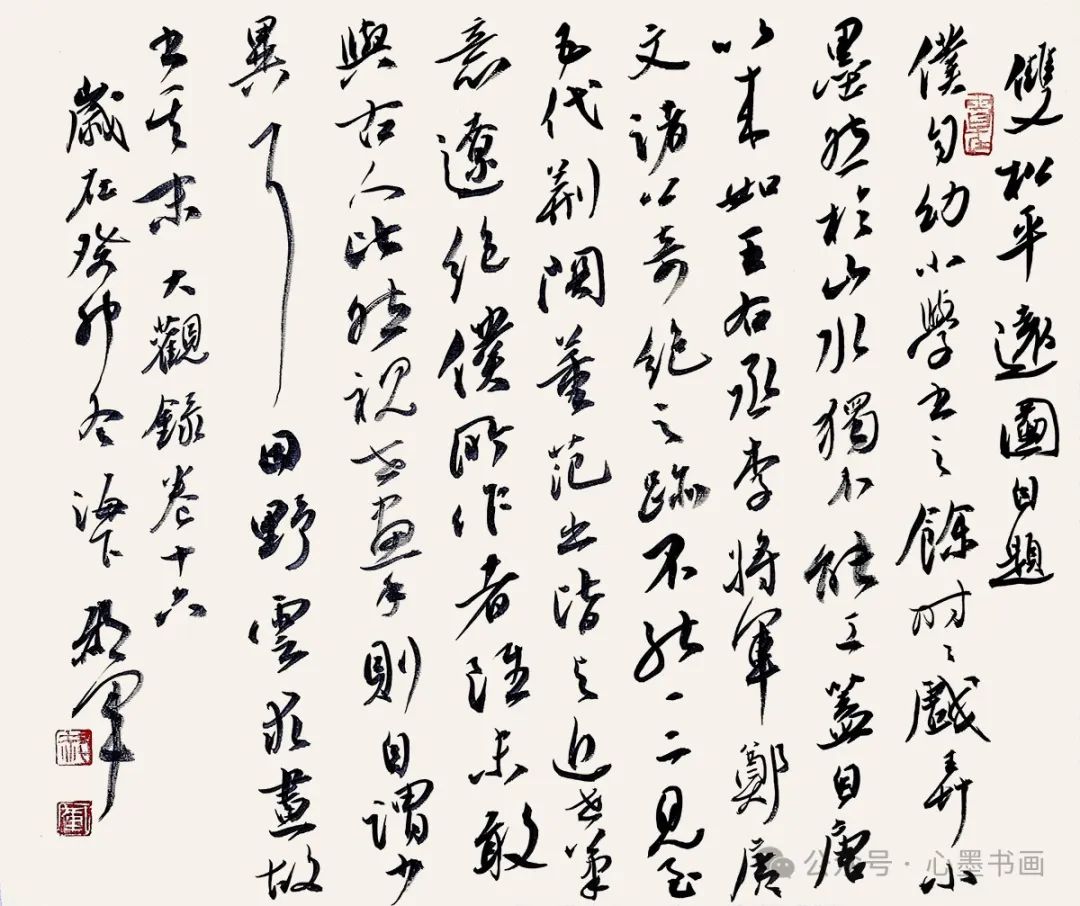 雙松平遠圖自題
僕自幼小學書之餘時〻戲弄小
墨然於山水獨不能工蓋自唐
以來如王右丞李將軍鄭廣
文諸公奇絕之跡不能一二見至
五代荆關董范出皆與近世筆
意遼絕僕所作者雖未敢
與古人比然視世畫手則自謂少
異耳 因野雲求畫故
書其末 大觀錄卷十六
歲在癸卯冬海下 軍
公众号·心墨书画